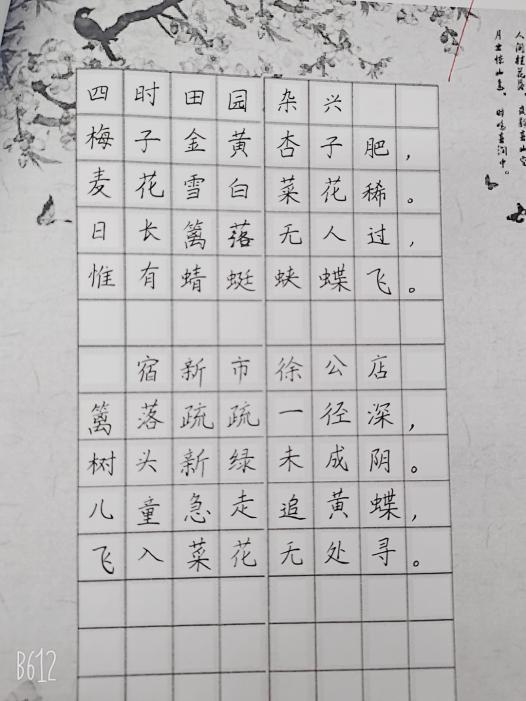 四时田园杂兴
梅子金黄杏子肥，
麦花雪白菜花稀。
日长篱落无人过，
惟有蜻蜓蛱蝶飞。
宿新市徐公店
篱落疏疏一径深，
树头新绿未成阴。
儿童急走追黄蝶，
飞入菜花无处寻。
人闲桂花落，夜静山空
月出惊山鸟，时鸣春涧中。
B612